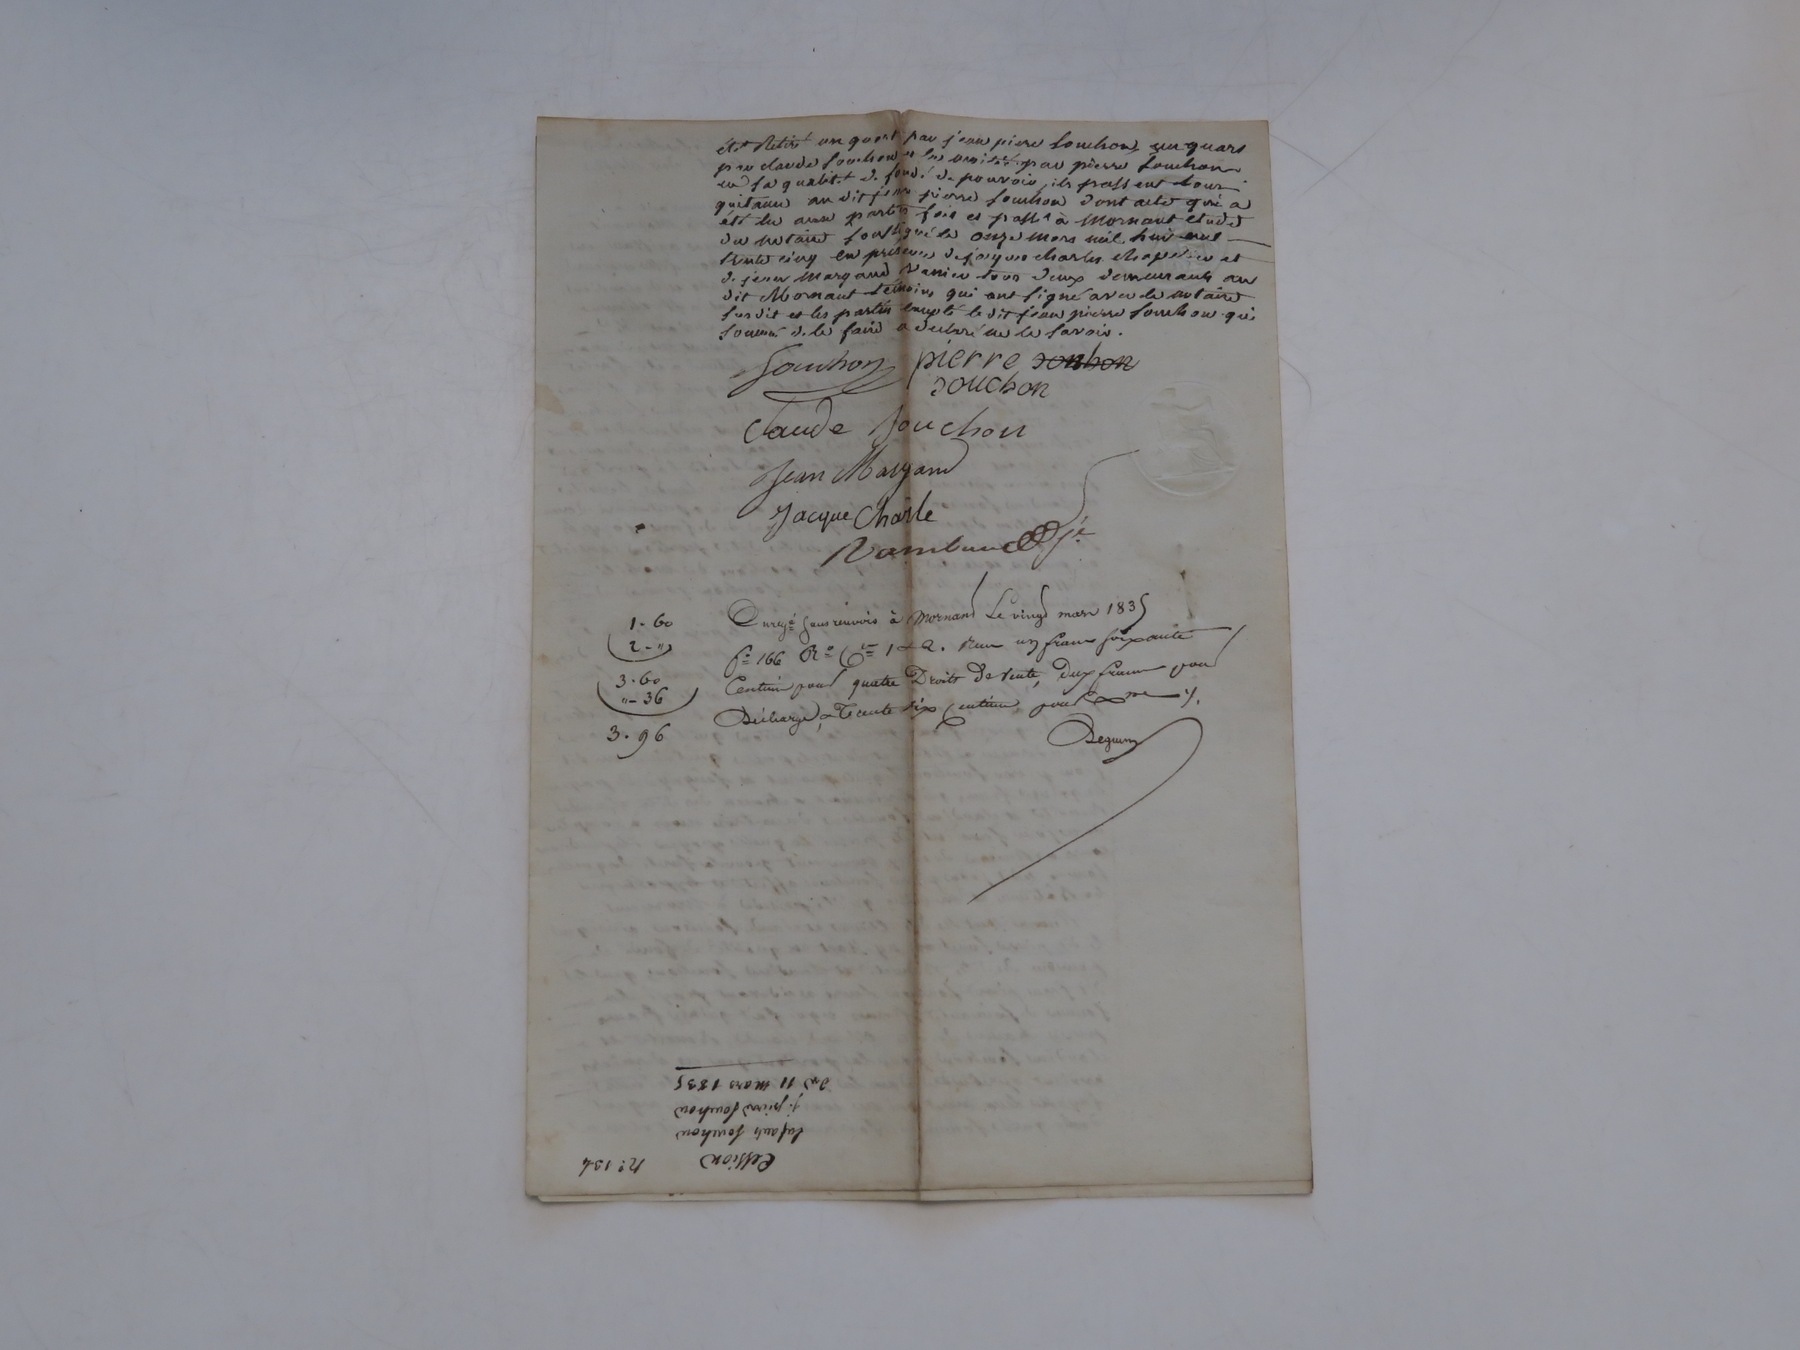 été Retiré un quart par jean pierre Souchon, un quart
par claude Souchon et les moitié par pierre Souchon
en sa qualité de fondé de pouvoir, ils passent tous
quitance au dit jean pierre Souchon dont acte qui a
été lu aux parties fais et passé à Mornant etude
du notaire soussigné le onze mars mil huit cent
trente cinq en présence de jacques charles chapelier et
de jean Margand Vannier tous deux demeurants au
dit Mornant temoins qui ont signé avec le notaire
susdit et les parties excepté le dit jean pierre Souchon qui
sommé de le faire a declaré ne le savoir.
Souchon pierre sonhon
souchon
Claude Souchon
Jean Margand
Jacque Charle
1. 60
2. "
3. 60
" - 36
3. 96
Enregé sans renvois à Mornant Le vingt mars 1835
fo 166 Ro Ces 1 & 2. Reçu un franc soixante
Centimes pour quatre Droits de vente, deux francs pour
Décharge, & Trente six Centimes pour
Cession No 134
Enfants Souchon
j. pierre Souchon
Du 11 mars 1835